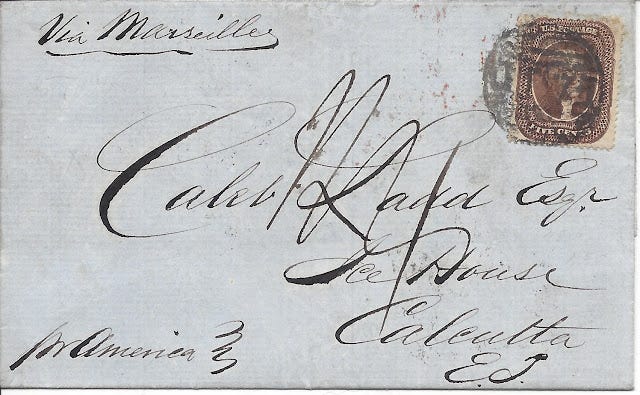 Via Marseilles
U.S. POSTAGE
FIVE CENTS
Caleb Ladd Esqr
Ice House
Calcutta
E.I.
pr America